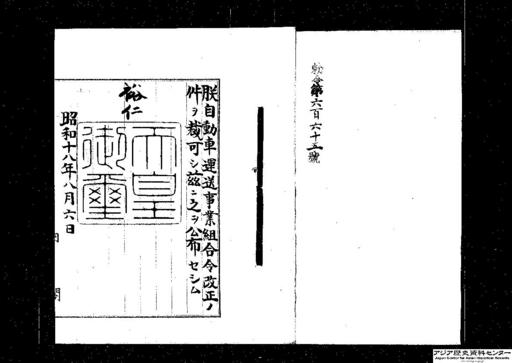 勅令第六百六十五號
朕自動車運送事業組合令改正ノ
件ヲ裁可シ茲ニ之ヲ公布セシム
裕仁
天皇
御璽
昭和十八年八月六日
内閣
アジア歴史資料センター
Japan Center for Asian Historical Records